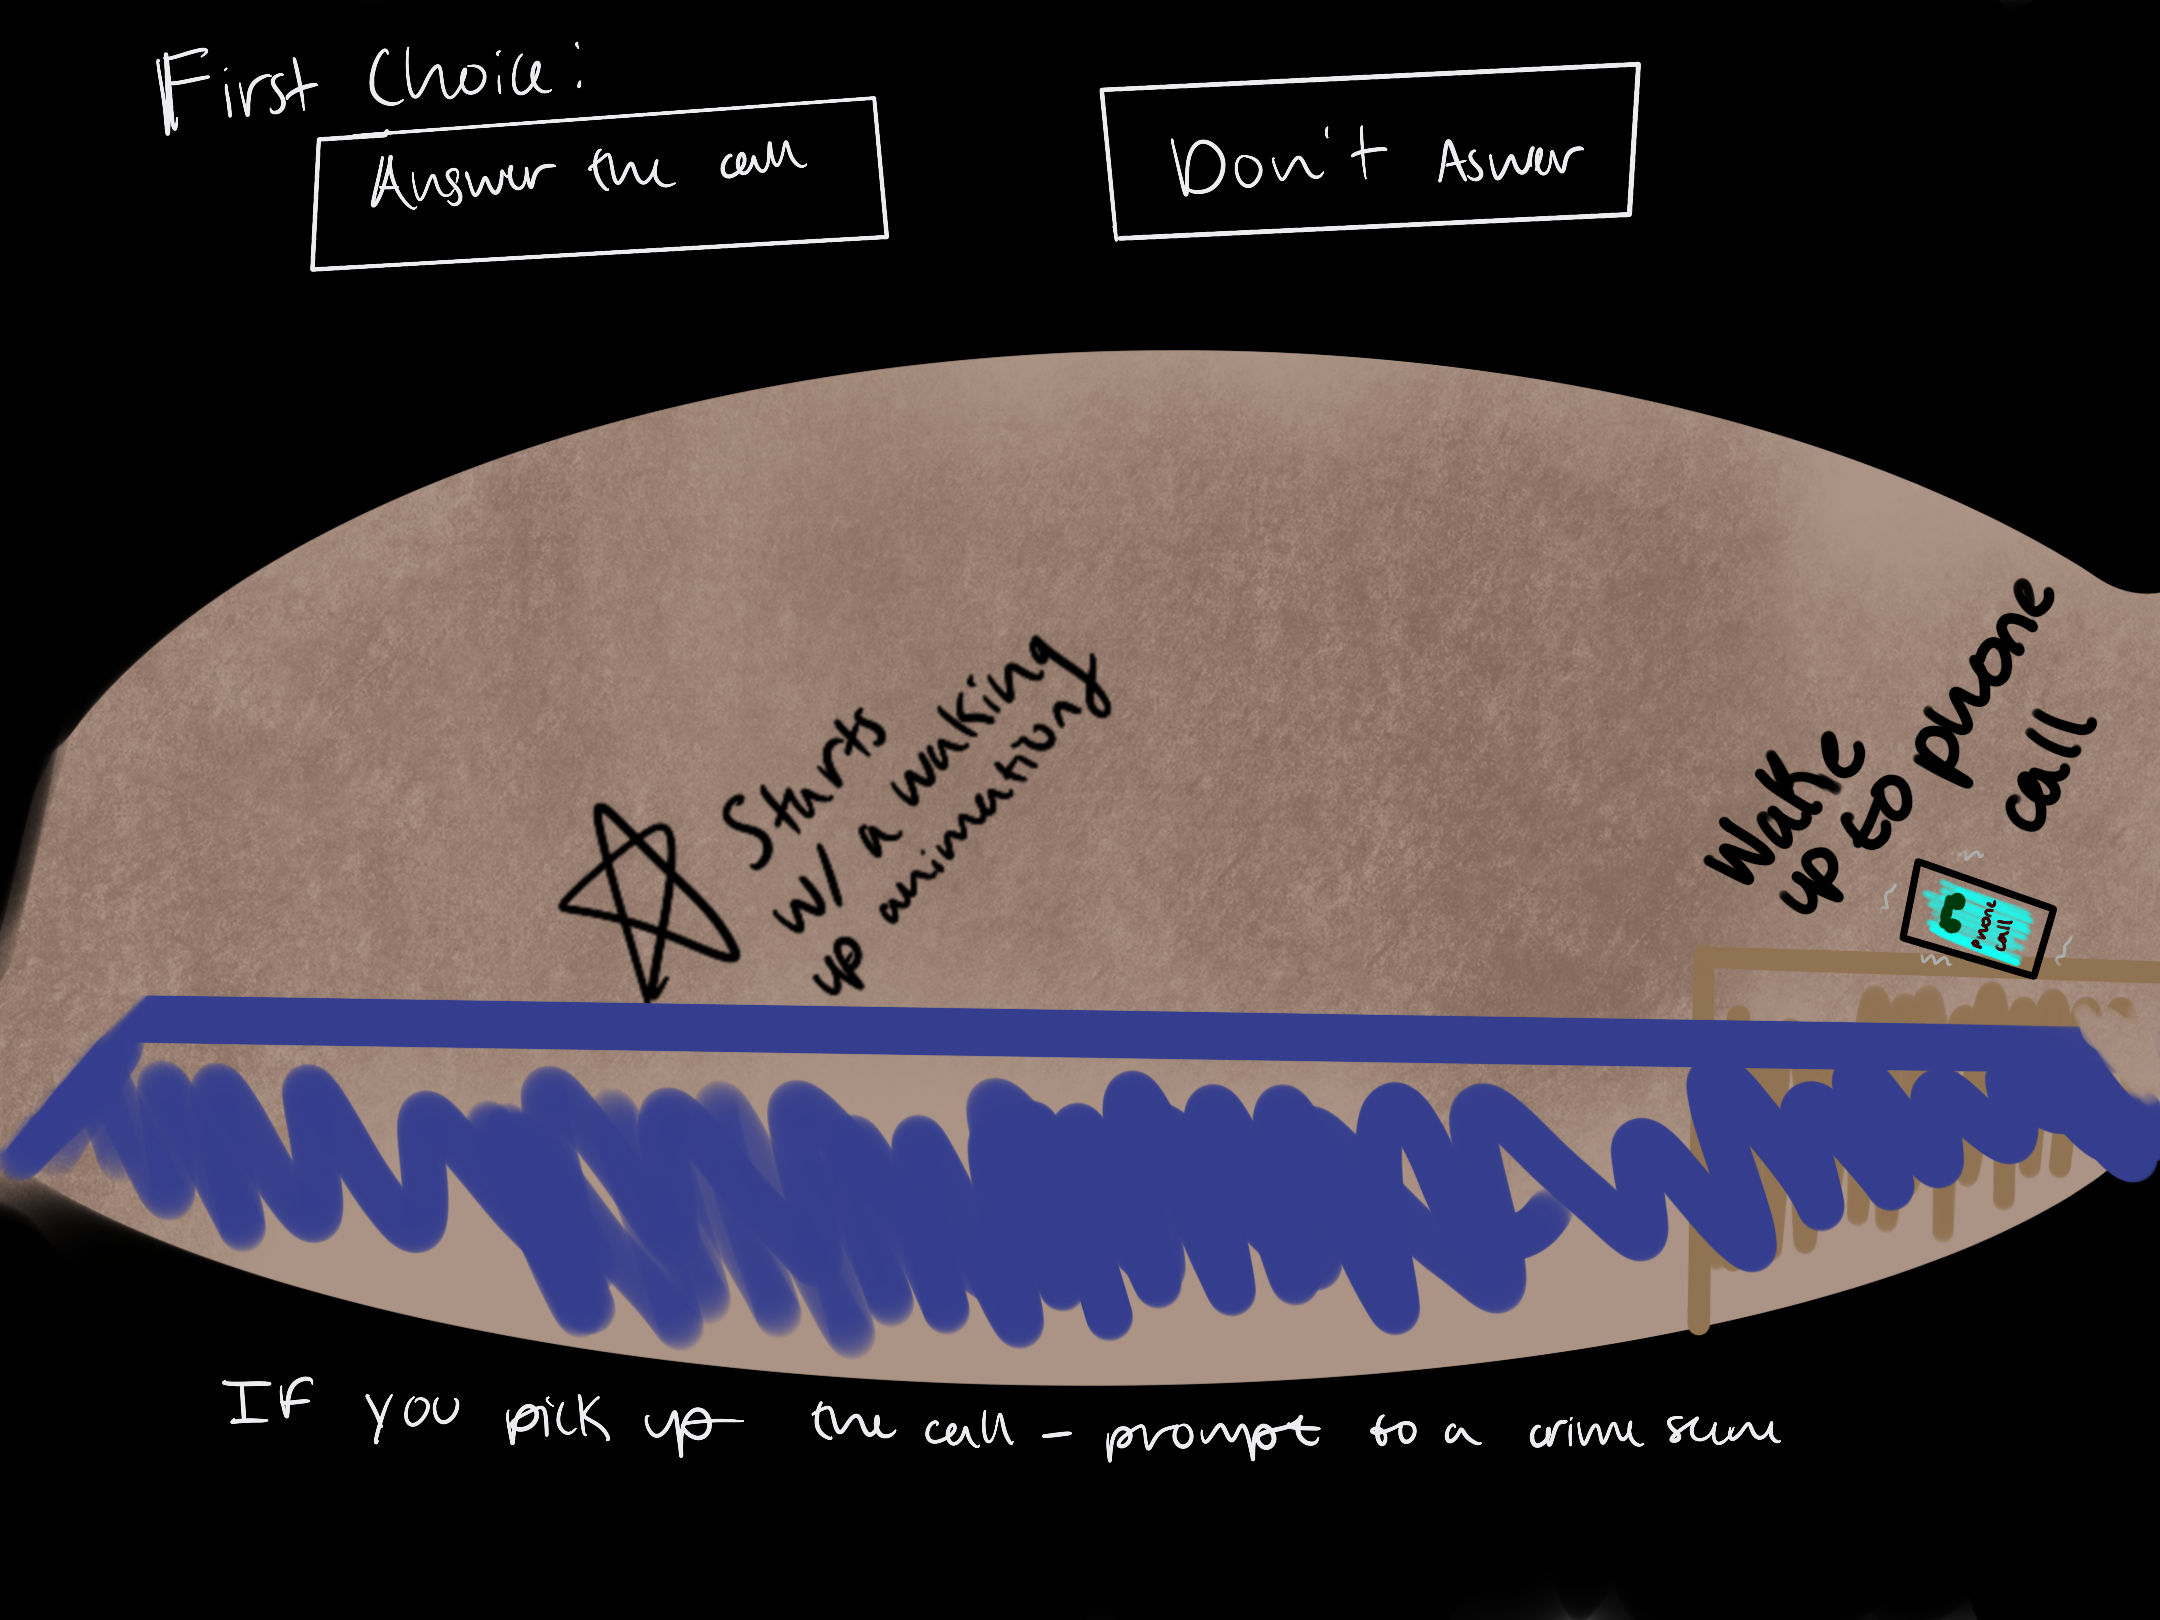 First Choice:
Answer the call
Don't Aswer
Starts
w/ a waking
up animation
Wake
up to phone
call
phone
call
If you pick up the call - prompt to a crime scene